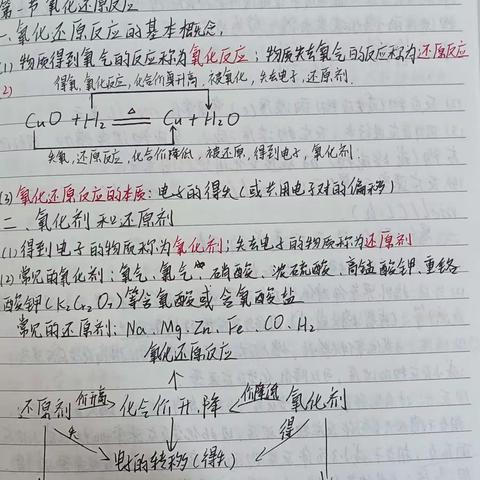 第一节 氧化还原反应
一、氧化还原反应的基本概念。
(1) 物质得到氧气的反应称为氧化反应；物质失去氧气的反应称为还原反应
(2) 得氧，氧化反应，化合价升高，被氧化，失去电子，还原剂.
CuO + H₂ ══△══ Cu + H₂O
失氧，还原反应，化合价降低，被还原，得到电子，氧化剂.
(3) 氧化还原反应的本质：电子的得失(或共用电子对的偏移)
二、氧化剂和还原剂
(1) 得到电子的物质称为氧化剂；失去电子的物质称为还原剂
(2) 常见的氧化剂：氧气、氯气、硝酸、浓硫酸、高锰酸钾、重铬
酸钾(K₂Cr₂O₇)等含氧酸或含氧酸盐
常见的还原剂：Na、Mg、Zn、Fe、CO、H₂
氧化还原反应
还原剂 价升高 化合价升.降 价降低 氧化剂
失 得
电子的转移(得失)